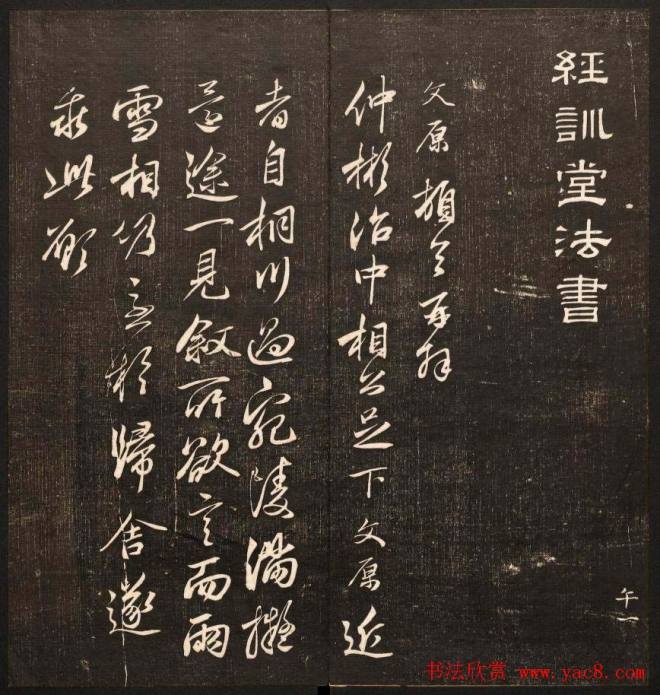 經訓堂法書
文原頓首再拜
仲彬治中相公足下文原近
者自桐川過宛陵滿擬
途一見叙所欲言而雨
雪相仍於歸舍遂
乖此願
午一
书法欣赏 www.yac8.com